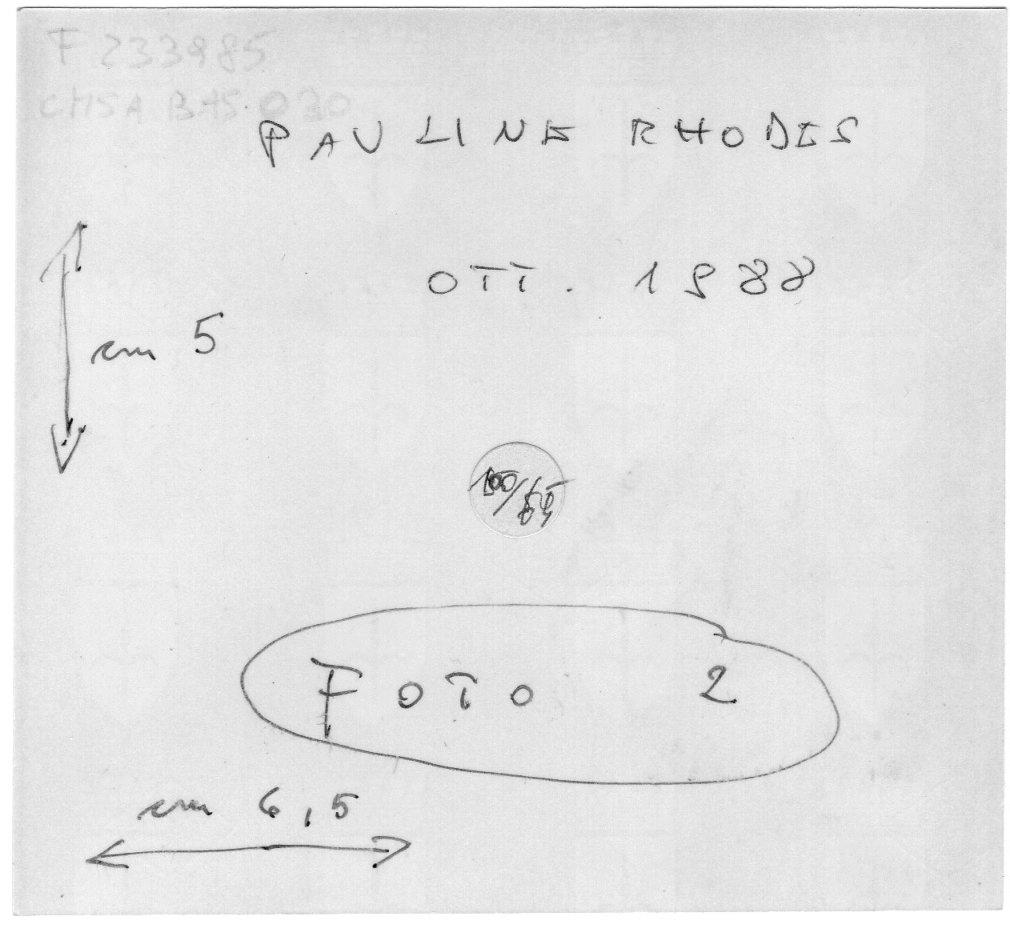 F 233985
CMSA BAS 020
PAULINE RHODES
OTT. 1988
cm 5
FOTO 2
cm 6,5